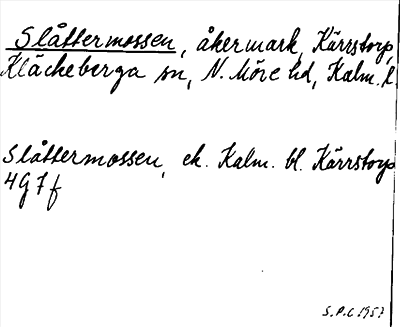 Slåttermossen, åkermark, Kärrstorp,
Kläckeberga sn, N. Möre hd, Kalm. l.
Slåttermossen, ek. Kalm. bl. Kärrstorp
4G7f
S.P.C 1957